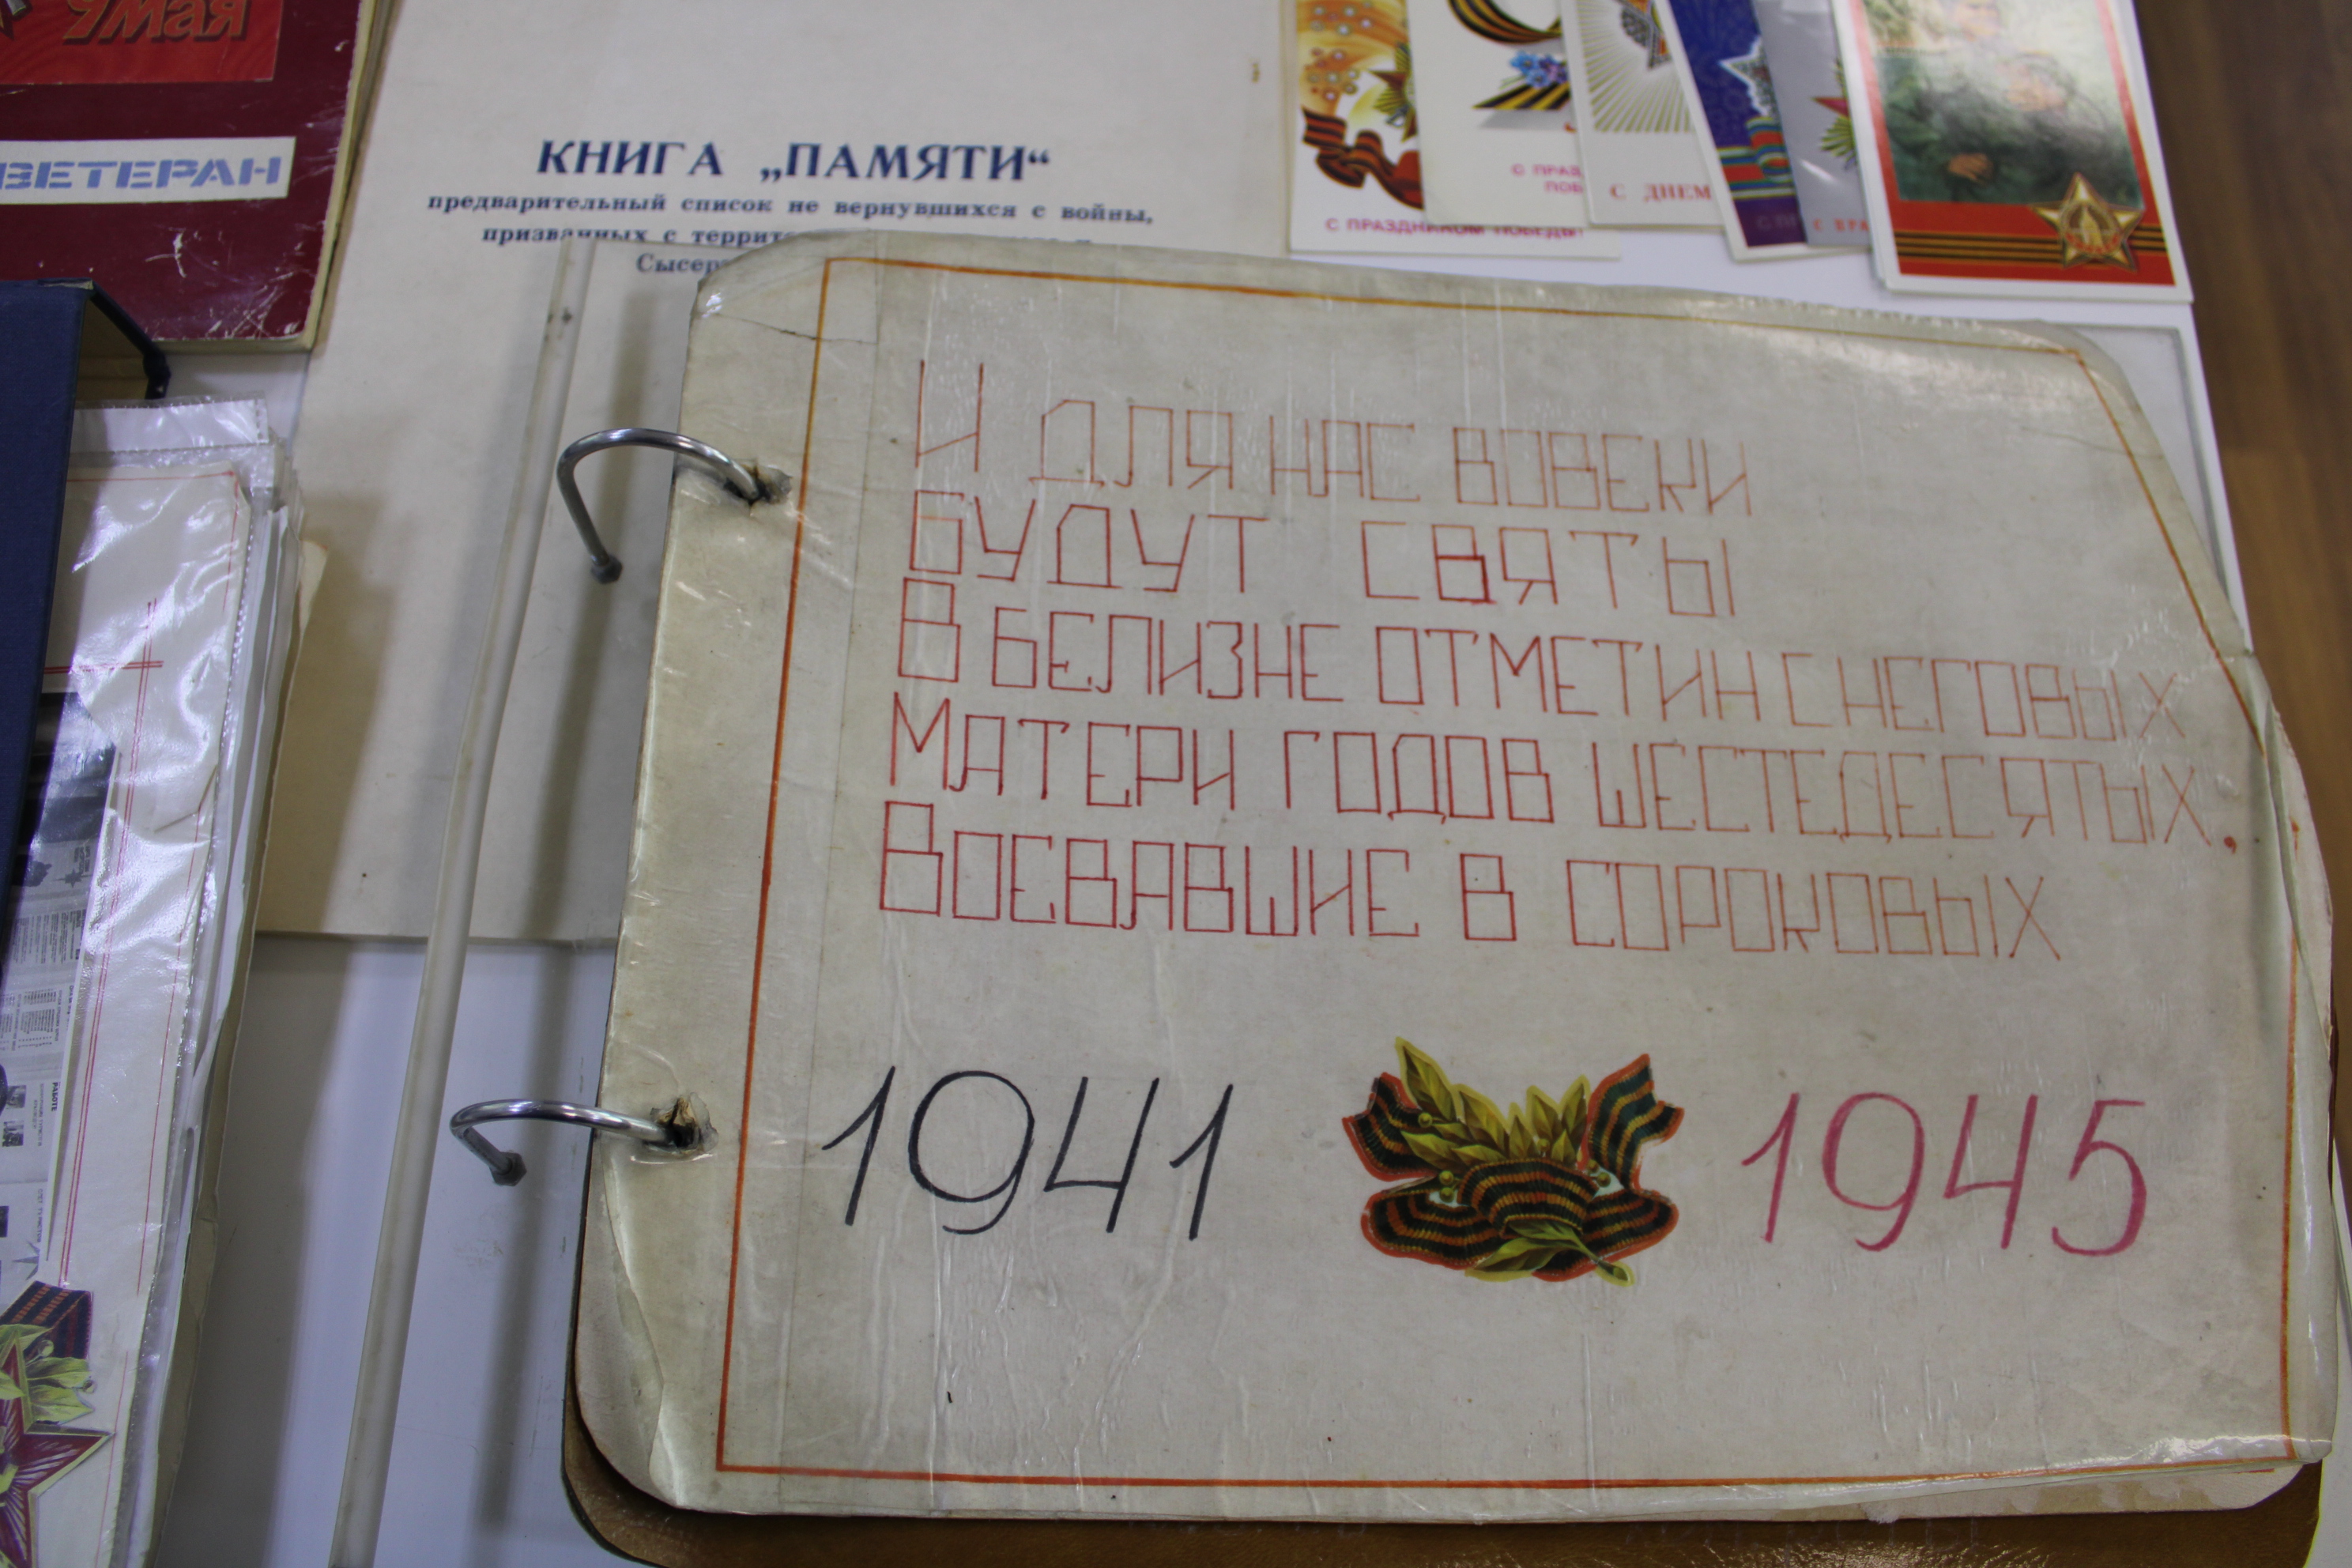 9 мая
ВЕТЕРАН
КНИГА „ПАМЯТИ“
предварительный список не вернувшихся с войны,
призванных с
С ПРАЗДНИКОМ ПОБЕДЫ!
С ДНЕМ
И ДЛЯ НАС ВОВЕКИ
БУДУТ СВЯТЫ
В БЕЛИЗНЕ ОТМЕТИН СНЕГОВЫХ
МАТЕРИ ГОДОВ ШЕСТЕДЕСЯТЫХ,
ВОЕВАВШИЕ В СОРОКОВЫХ
1941 1945